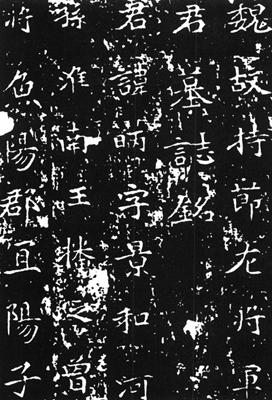 魏故持節左將軍
君墓誌銘
君諱昞字景和河
孫淮南王播之曾
將魚陽郡宜陽子